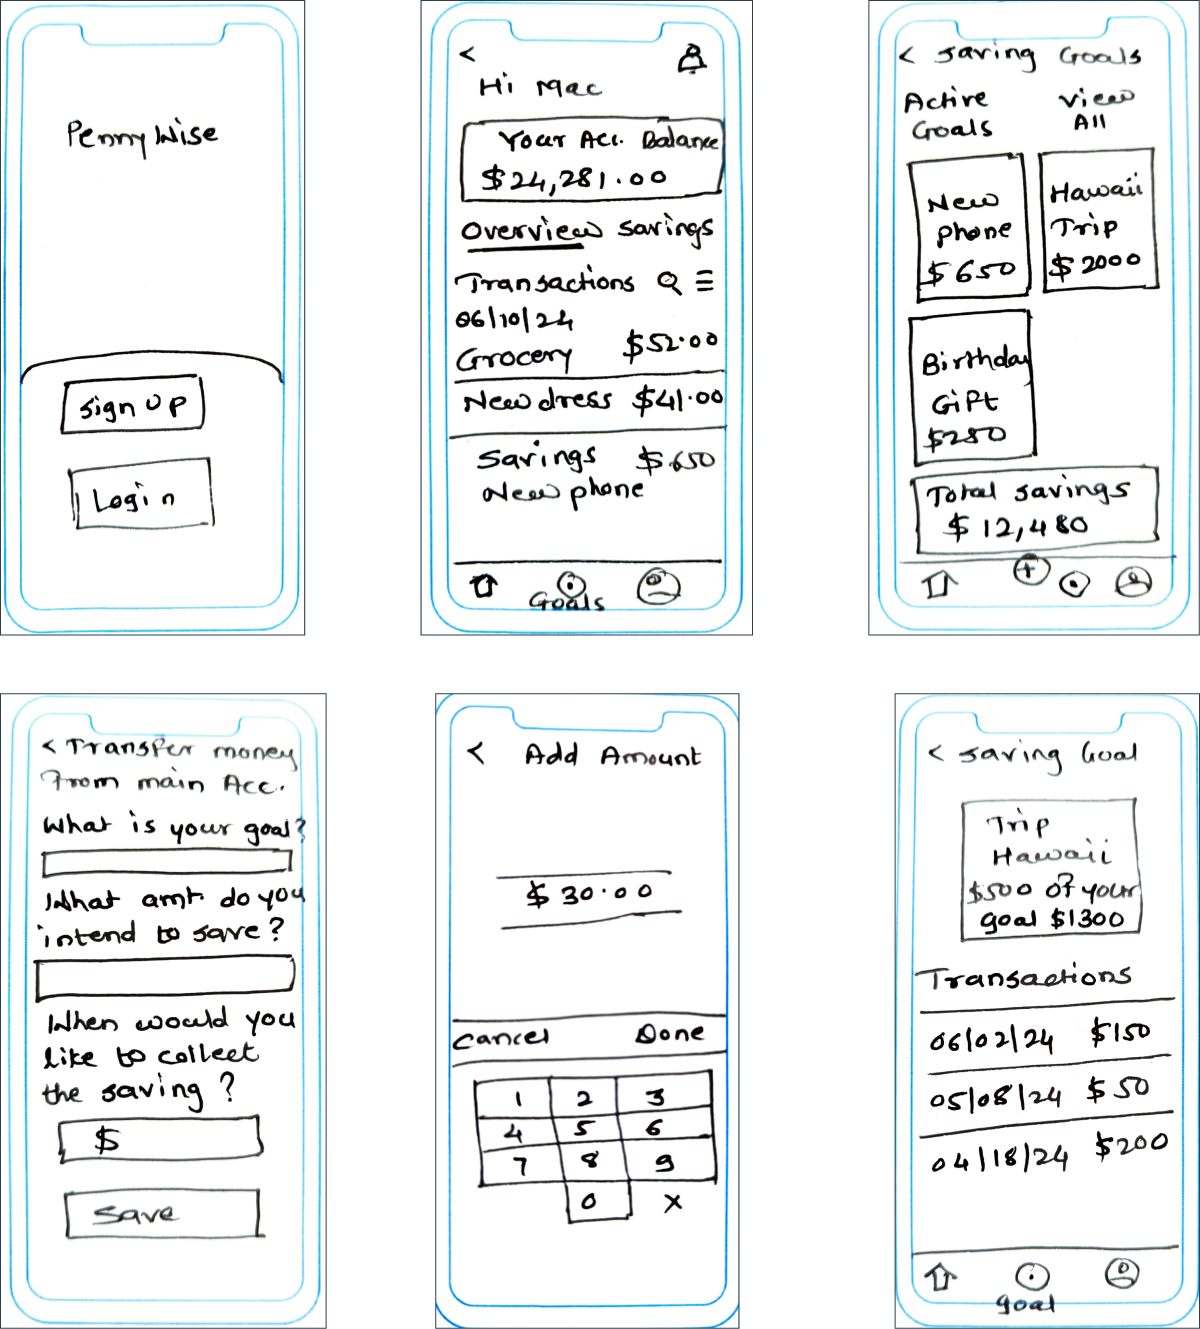 Penny Wise
Sign Up
Login
<
Hi Mac
Your Acc. Balance
$24,281.00
Overview Savings
Transactions
06/10/24
Grocery $52.00
New dress $41.00
Savings $650
New phone
Goals
< Saving Goals
Active View
Goals All
New
phone
$650
Hawaii
Trip
$2000
Birthday
Gift
$280
Total savings
$12,480
+
< Transfer money
From main Acc.
What is your goal?
What amt. do you
intend to save?
When would you
like to collect
the saving?
$
Save
< Add Amount
$30.00
Cancel Done
1 2 3
4 5 6
7 8 9
0 X
< Saving Goal
Trip
Hawaii
$500 of your
goal $1300
Transactions
06/02/24 $150
05/08/24 $50
04/18/24 $200
goal